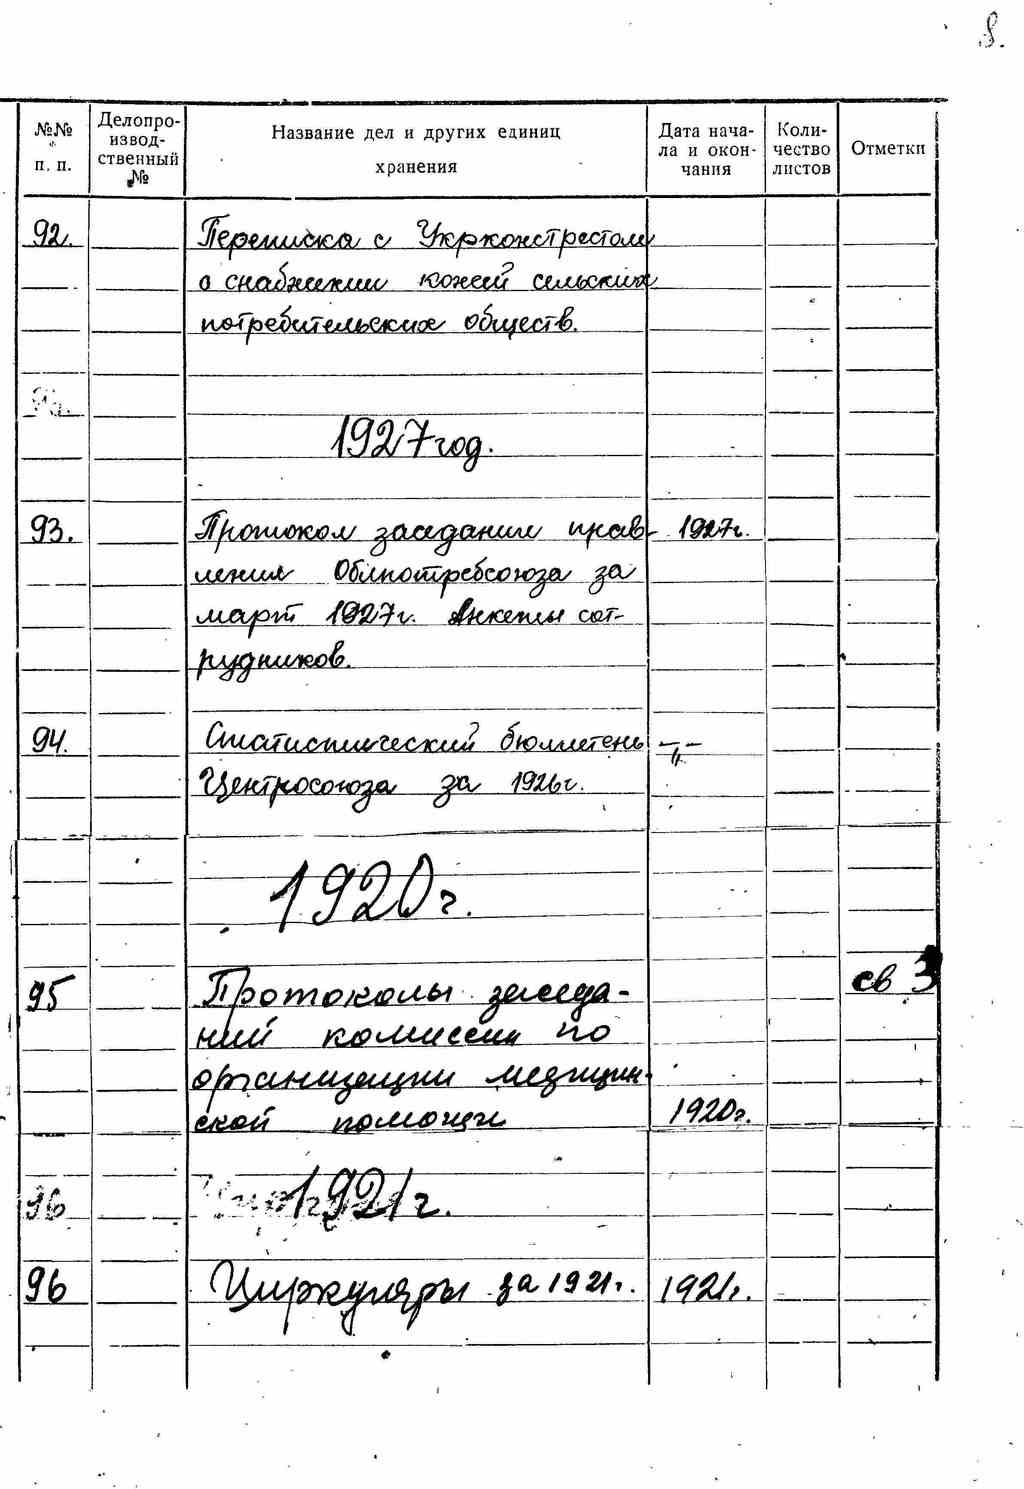 8.
№№ п. п. Делопроизводственный № Название дел и других единиц хранения Дата начала и окончания Количество листов Отметки
92. Переписка с Укрконстрестом
о снабжении кожей сельских
потребительских обществ.
1927 год.
93. Протокол заседании прав- 1927г.
ления Облпотребсоюза за
март 1927г. Анкеты сот-
рудников.
94. Статистический бюллетень -"-
Центросоюза за 1926г.
1920г.
95 Протоколы заседа- св 3
ний комиссии по
организации медицин-
ской помощи 1920г.
96 1921г.
96 Циркуляры за 1921г. 1921г.